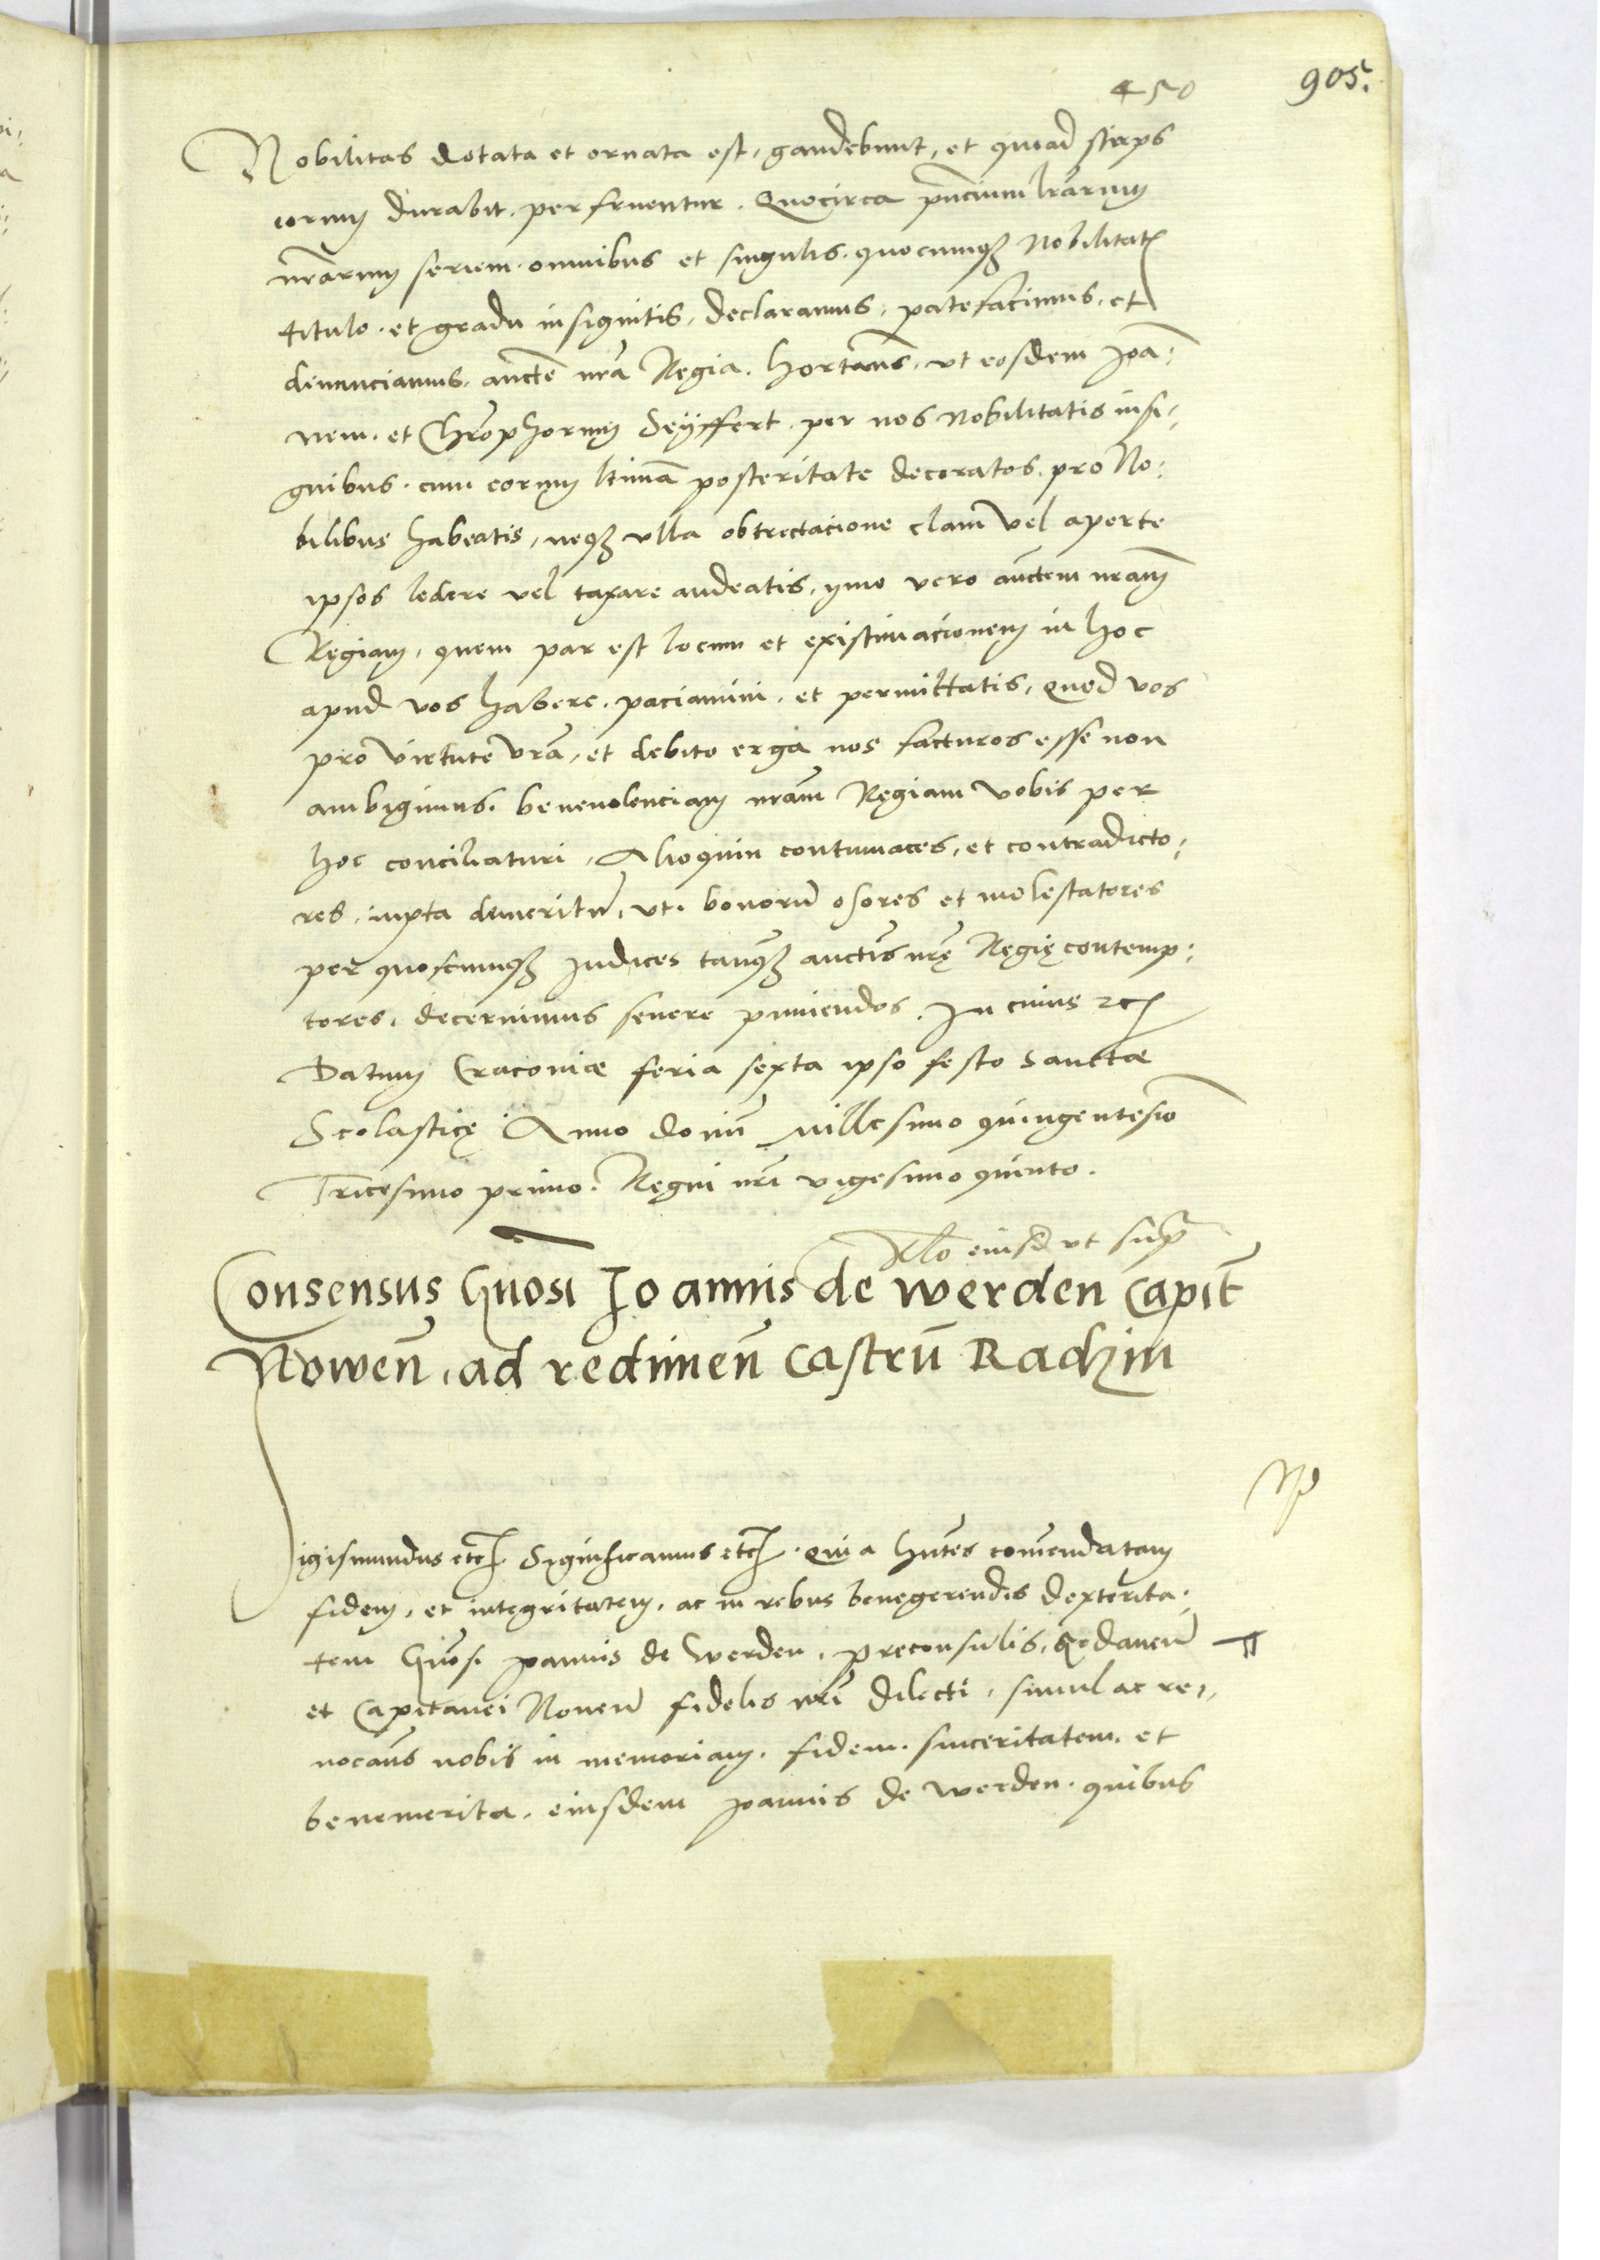 450
905.
Nobilitas dotata et ornata est, gaudebunt, et quoad stirps
eorum durabit, perfruentur. Quocirca pñcium lrãrum
nrãrum seriem, omnibus et singulis, quocumqꝫ Nobilitatꝭ
titulo, et gradu insignitis, declaramus, patefacimus, et
denunciamus, aucte nrã Regia. hortantes, ut eosdem Joa-
nem, et Chrophorum Seyffert, per nos Nobilitatis insi-
gnibus, cum eorum ltima posteritate decoratos, pro No-
bilibus habeatis, neqꝫ ulla obtrectacione clam vel aperte
ipsos ledere vel taxare audeatis, ymo vero auctem nram
Regiam, quem par est locum et existimacionem in hoc
apud vos habere, paciamini, et permittatis, Quod vos
pro virtute vrã, et debito erga nos facturos esse non
ambigimus, benevolenciam nram Regiam vobis per
hoc conciliaturi, Alioquin contumaces, et contradicto-
res, iuxta demeritũ, ut bonorũ osores et molestatores
per quoscumqꝫ Judices tanqꝫ auctis nrę Regię contemp-
tores, decernimus severe puniendos. In cuius rei
Datum Cracoviæ feria sexta ipso festo Sanctæ
Scolasticę Anno domini millesimo quingentesimo
Tricesimo primo. Regni nrĩ vigesimo quinto.
Rlo eiusd ut supra
Consensus Gnosi Joannis de werden Capit
Nowen̄, ad redimen̄ Castrũ Radzin
Sigismundus etcꝭ. Significamus etcꝭ. Quia hntes comendatam
fidem, et integritatem, ac in rebus benegerendis dexterita-
tem Gnosi Joannis de Werden, preconsulis, Gedanen̄
et Capitanei Noven̄ fidelis nrĩ dilecti, simul ac re-
vocans nobis in memoriam, fidem, sinceritatem, et
benemerita, eiusdem Joannis de Werden, quibus